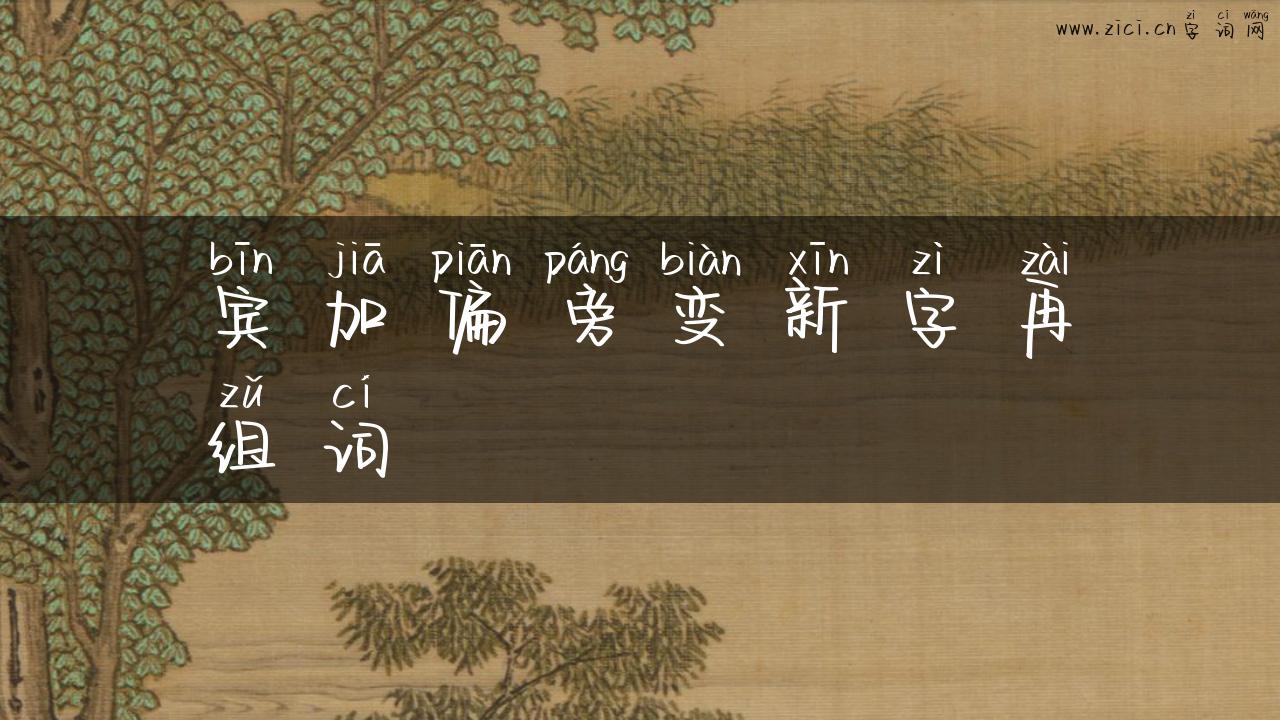 zì cí wǎng
www.zici.cn字词网
bīn jiā piān páng biàn xīn zì zài
宾加偏旁变新字再
zǔ cí
组词